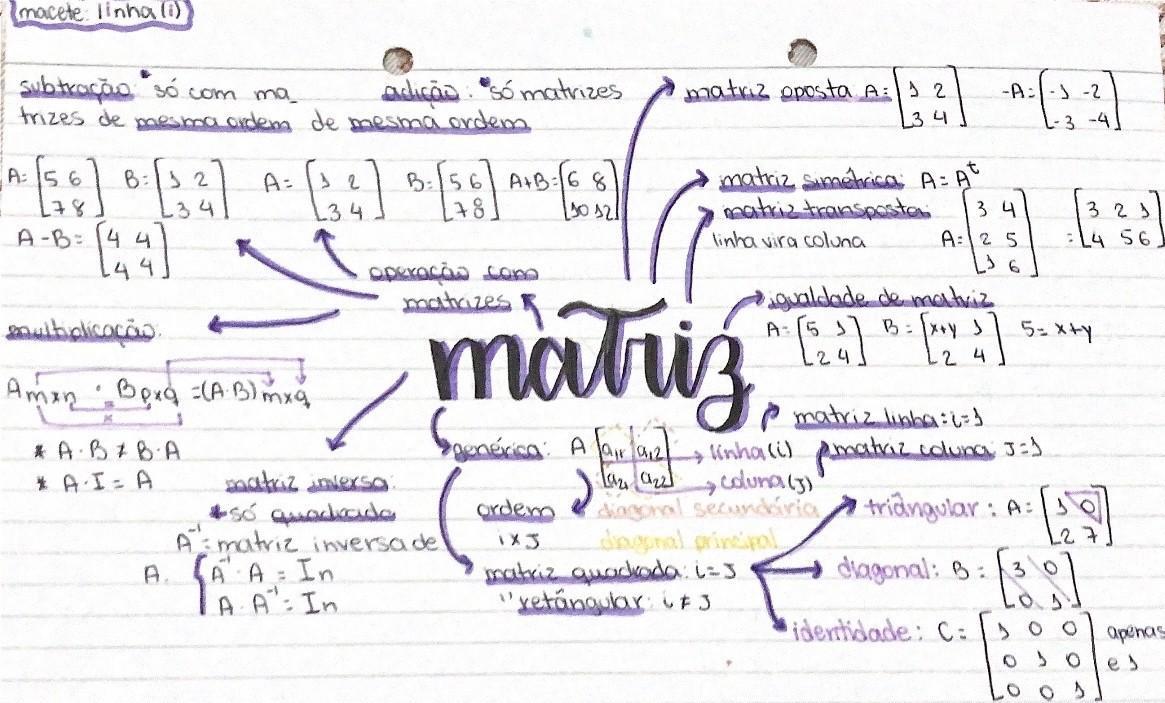 macete: linha(i)
subtração: *só com ma_
trizes de mesma ordem
A=[5 6
7 8] B=[1 2
3 4]
A-B=[4 4
4 4]
adição: *só matrizes
de mesma ordem
A=[1 2
3 4] B=[5 6
7 8] A+B=[6 8
10 12]
operação com
matrizes
multiplicação:
Amxn · Bpxq =(A·B)mxq
* A·B ≠ B·A
* A·I = A
matriz inversa:
*só quadrada
A⁻¹=matriz inversa de
A. {A⁻¹·A = In
A·A⁻¹=In
matriz
matriz oposta A=[1 2
3 4] -A=[-1 -2
-3 -4]
matriz simétrica: A=Aᵗ
matriz transposta:
linha vira coluna
A=[3 4
2 5
1 6] =[3 2 1
4 5 6]
igualdade de matriz
A=[5 1
2 4] B=[x+y 1
2 4] 5=x+y
matriz linha: i=1
matriz coluna: J=1
genérica: A [a11 a12
a21 a22]
linha(i)
coluna(J)
diagonal secundária
diagonal principal
ordem
i x J
matriz quadrada: i=J
"retángular: i≠J
triângular: A=[1 0
2 7]
diagonal: B=[3 0
0 1]
identidade: C=[1 0 0
0 1 0
0 0 1] apenas
e 1